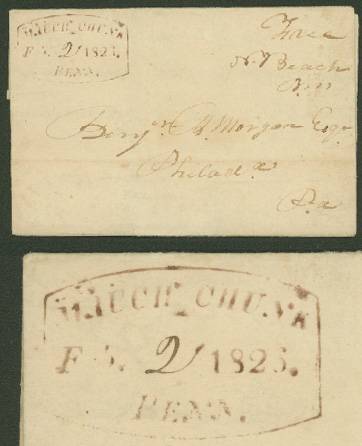 MAUCH CHUNK
F 5. 21 1825.
PENN.
Free
N. Beach
P.M
Benjn. R. Morgan Esqr
Philada
Pa
MAUCH CHUNK
F 5. 21 1825.
PENN.